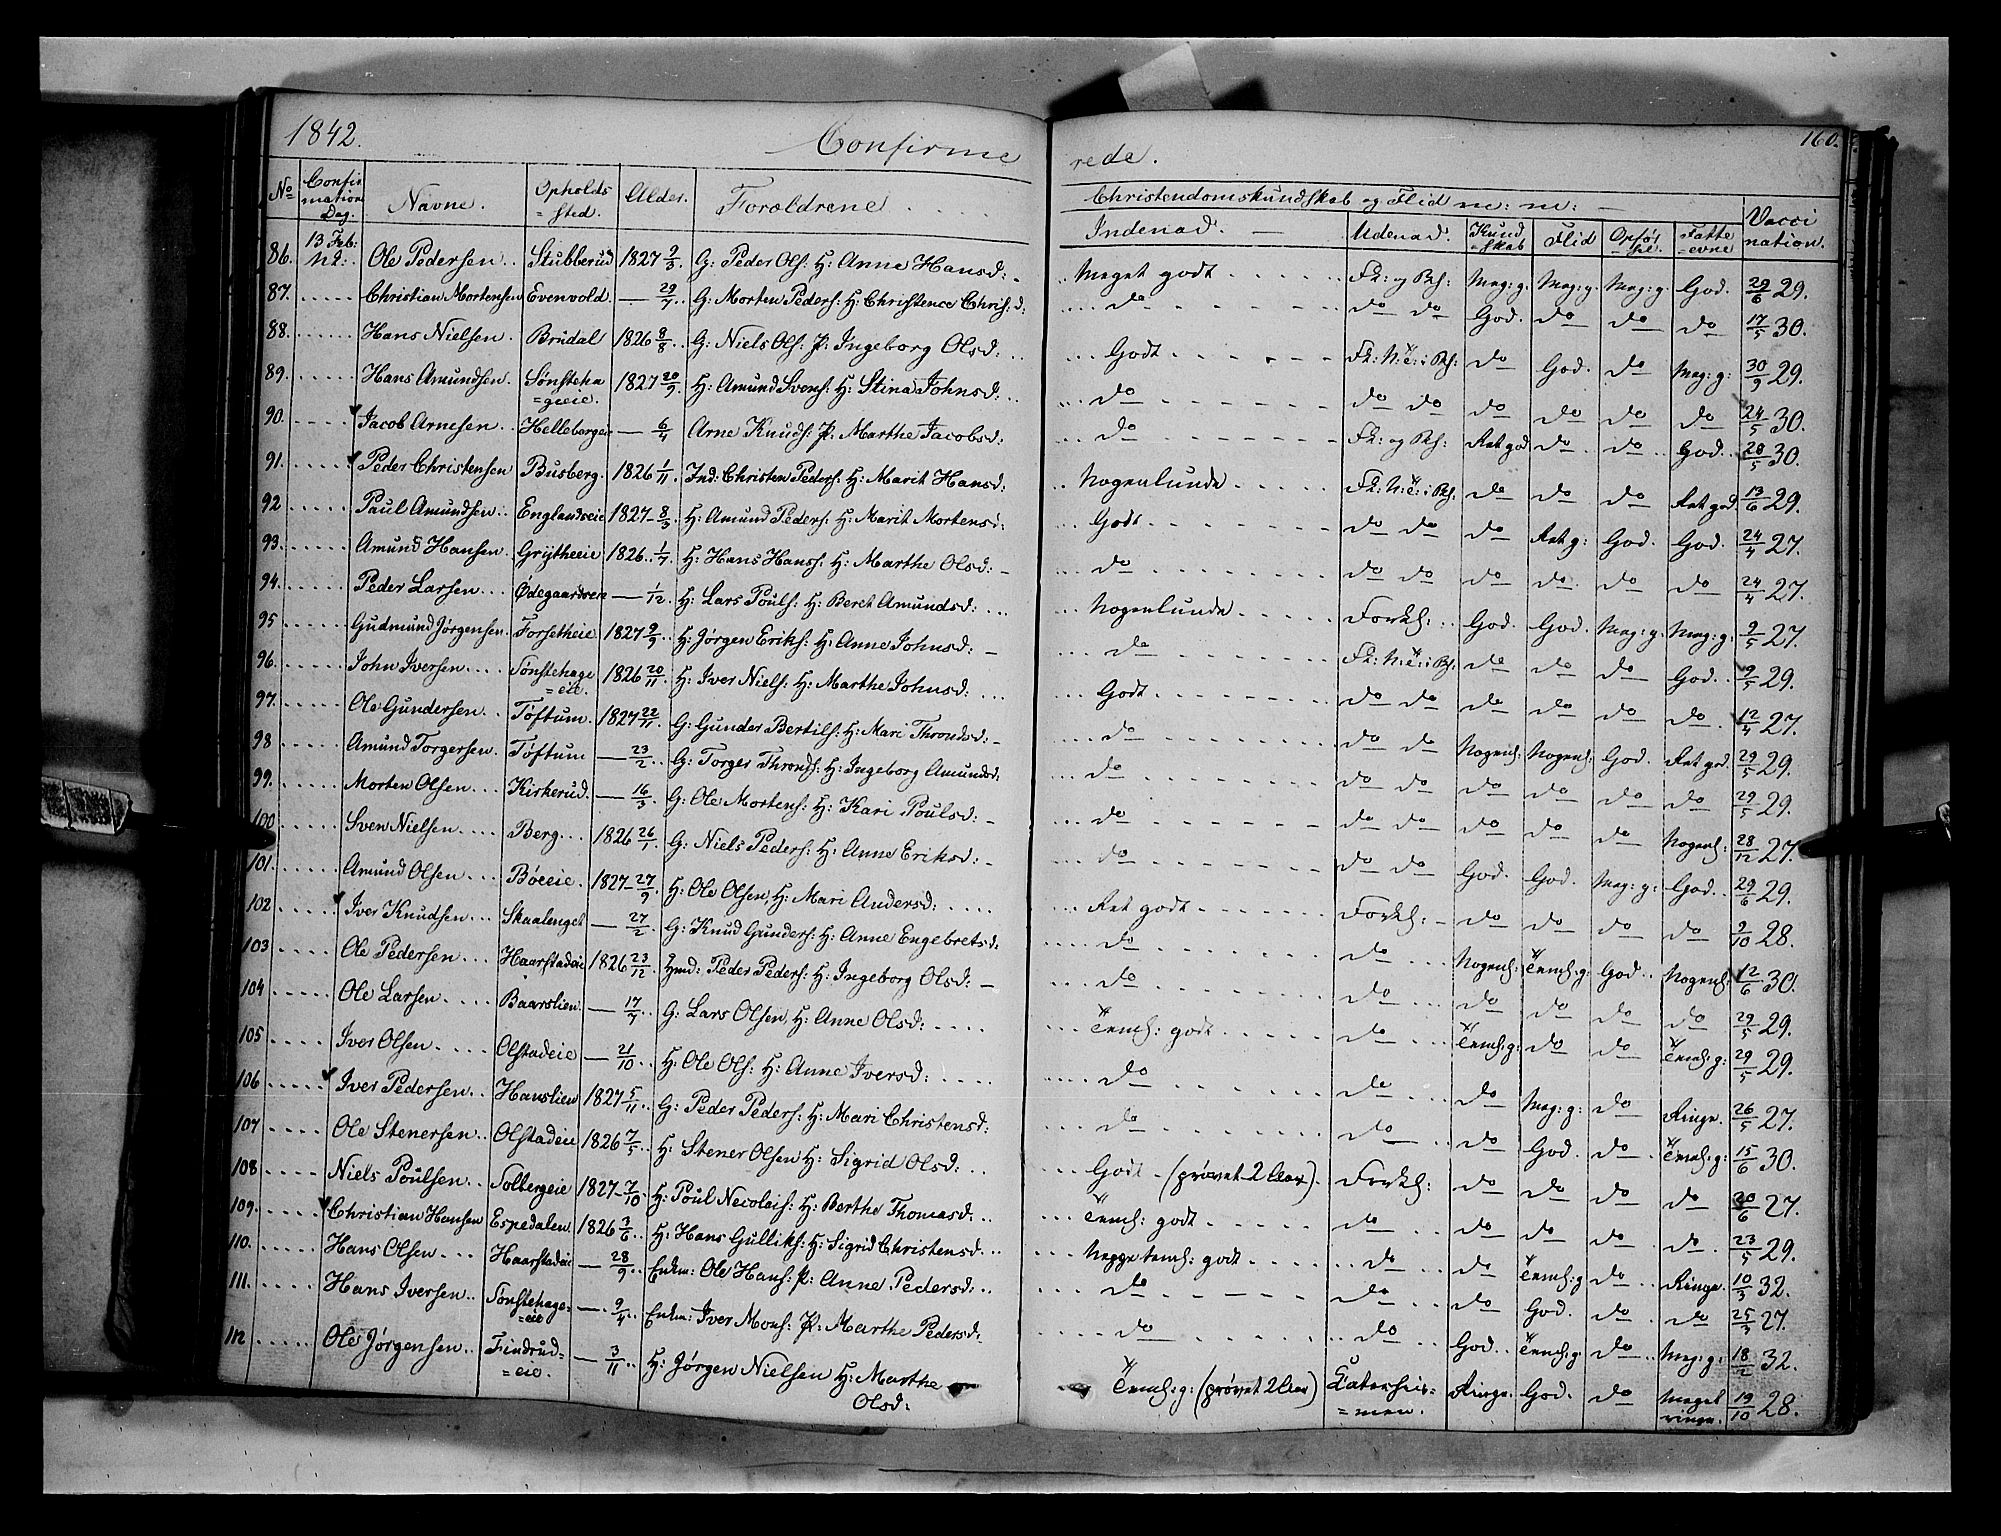 1842. Confirme rede. 160.
No Confirmations Dag. Navne. Opholds =sted. Alder. Forældrene
Christendomskundskab og Flid m: m:
Indenad. Udenad. Kund =skab Flid Opfør =sel. Fatte =evne Vacci nation.
86. 13 Feb: Ole Pedersen Stubberud 1827 9/3 G: Peder Ols: H: Anne Hansd: Meget godt Fk: og Bh: Meg: g. Meg: g. Meg: g. God. 29/6 29.
87. Christian Mortensen Evenvold — 29/7 G: Morten Peders: H: Christence Chris: d: do do do God. do do do 17/5 30.
88. Hans Nielsen Brudal 1826 8/8 G: Niels Ols: P: Ingeborg Olsd: Godt do God. do Meg: g: 30/9 29.
89. Hans Amundsen Sønsteha =geeie. 1827 20/9 H: Amund Svens: H: Stina Johnsd: do do do do do do do 24/5 30.
90. Jacob Arnesen Helleborgeie — 6/4 Arne Knuds: P: Marthe Jacobsd: do Fk: og Bh: Ret god do do God. 28/5 30.
91. Peder Christensen Busberg 1826 1/11 Ind: Christen Peders: H: Marit Hansd: Nogenlunde do do do Ret god 13/6 29.
92 Paul Amundsen Englandseie 1827 8/3 H: Amund Peders: H: Marit Mortensd: Godt do do do Ret g: God. God. 24/4 27.
93. Amund Hansen Grytheeie 1826 1/7 H: Hans Hans: H: Marthe Olsd: do do do do do do do 24/4 27.
94. Peder Larsen Ødegaardseie — 1/12 H: Lars Pouls: H: Beret Amundsd: Nogenlunde God. God. Meg: g. Meg: g: 9/5 27.
95 Gudmund Jørgensen Forsetheie 1827 9/9 H: Jørgen Eriks: H: Anne Johnsd: do do do do God. 9/5 29.
96. John Iversen Sønstehage =eie. 1826 20/11 H: Iver Niels: H: Marthe Johnsd: Godt do do do do do do 12/4 27.
97. Ole Gundersen Toftum 1827 22/11 G: Gunder Bertils: H: Mari Throndsd: do do do Nogenl: Nogenl: God. Ret god 29/5 29.
98 Amund Torgersen Toftum — 23/2 G: Torger Thronds: H: Ingeborg Amundsd: do do do do do do do 29/5 29.
99. Morten Olsen Kirkerud. — 16/3 G: Ole Mortens: H: Kari Poulsd: do do do do do do Nogenl: 28/12 27.
100 Sven Nielsen Berg 1826 26/1 G: Niels Peders: H: Anne Eriksd: do do do God. God. Meg: g: God. 29/6 29.
101. Amund Olsen Bøeeie. 1827 27/9 H: Ole Olsen, H: Mari Andersd: Ret godt do do do do 9/10 28.
102 Iver Knudsen Skaalenget — 27/2 G: Knud Gunders: H: Anne Engebretsd: do do Nogenl: Teml: g: God Nogenl: 12/6 30.
103. Ole Pedersen Haarstadeie 1826 23/12 Hmd: Peder Peders: H: Ingeborg Olsd: do do do do do do 29/5 29.
104 Ole Larsen Baarslien — 17/7 G: Lars Olsen, H: Anne Olsd: Teml: godt do Teml: g: do do Teml: g: 29/5 29.
105 Iver Olsen Olstadeie — 21/10 H: Ole Ols: H: Anne Iversd: do do do Meg: g: do Ringe. 26/5 27.
106 Iver Pedersen Hanslien 1827 5/11 G: Peder Peders: H: Mari Christensd: do do do God. do Teml: g: 15/6 30.
107 Ole Stenersen Olstadeie 1826 7/5 H: Stener Olsen H: Sigrid Olsd: Godt (prøvet 2 Aar) do do do do 20/6 27.
108. Niels Poulsen Solbergeie 1827 7/10 H: Poul Necolais: H: Berthe Thomasd: Teml: godt do do do do do 23/5 29.
109. Christian Hansen Espedalen 1826 3/6 H: Hans Gulliks: H: Sigrid Christensd: teml: godt do do Teml: g do Ringe. 10/3 32.
110. Hans Olsen Haarstadeie — 28/9 Enkm: Ole Hans: P: Anne Pedersd: do do do God. do do 25/3 27.
111. Hans Iversen Sønstehage= =eie — 9/4 Enkm: Iver Mons: P: Marthe Pedersd: do do God Teml: g: do Meg: g: 18/2 32.
112 Ole Jørgensen Findrud= =eie. — 3/11 H: Jørgen Nielsen H: Marthe Olsd: Teml: g: (prøvet 2 Aar) Ringe. God. do Meget ringe. 19/10 28.